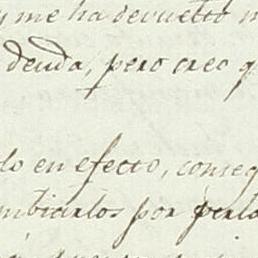 y me ha devuelto
deuda, pero creo q
do en efecto, conseq
mbiarlos por perlo